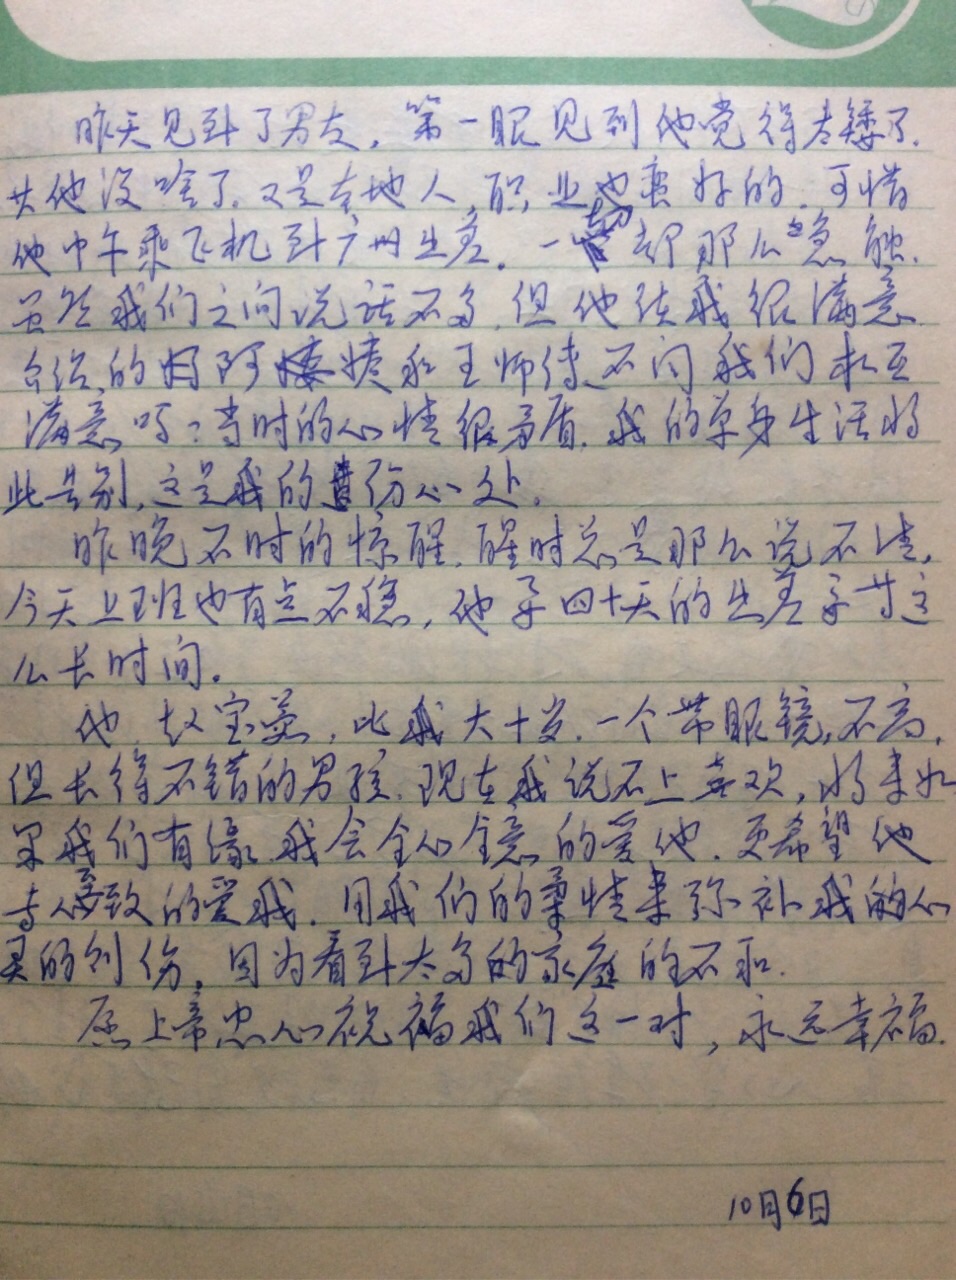 昨天见到了男友，第一眼见到他觉得太矮了.
其他没啥了.又是本地人,职业也蛮好的.可惜
他中午乘飞机到广州出差.一切都那么急触.
虽然我们之间说话不多,但他续我很满意
介绍的阿姨和王师傅不问我们相互
满意吗?当时的心情很矛盾.我的单身生活将
此告别,这是我的伤心处.
昨晚不时的惊醒.醒时总是那么说不清,
今天上班也有点不稳,他要四十天的出差要去这
么长时间。
他,赵宝,比我大十岁.一个带眼镜,不高,
但长得不错的男孩.现在我说不上喜欢,将来如
果我们有缘.我会全心全意的爱他.更希望他
专心致的爱我.用我们的柔情来弥补我的心
灵的创伤,因为看到太多的家庭的不和.
愿上帝忠心祝福我们这一对,永远幸福.
10月6日